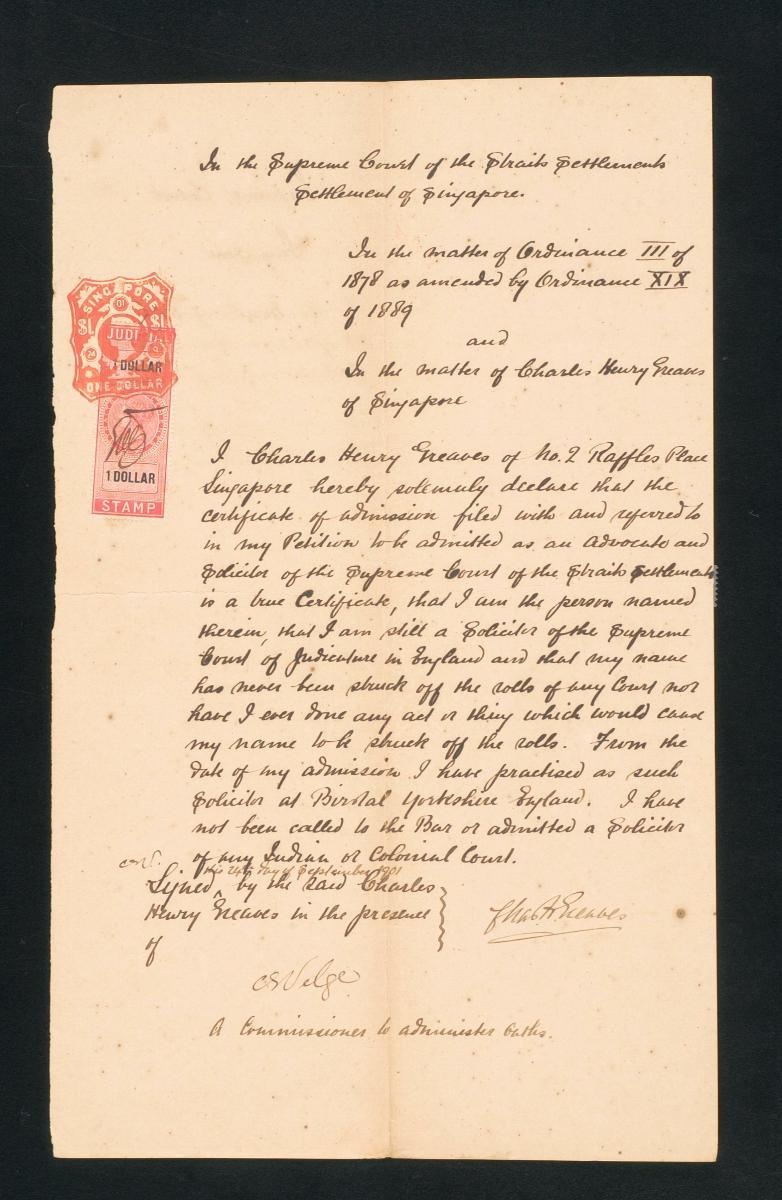 In the Supreme Court of the Straits Settlements
Settlement of Singapore.
In the matter of Ordinance III of
1878 as amended by Ordinance XIX
of 1889
and
In the matter of Charles Henry Greaves
of Singapore
SINGAPORE
01
$1 $1
JUDICIAL
24 9
1 DOLLAR
ONE DOLLAR
1 DOLLAR
STAMP
I Charles Henry Greaves of No. 2 Raffles Place
Singapore hereby solemnly declare that the
certificate of admission filed with and referred to
in my Petition to be admitted as an Advocate and
Solicitor of the Supreme Court of the Straits Settlements
is a true Certificate, that I am the person named
therein, that I am still a Solicitor of the Supreme
Court of Judicature in England and that my name
has never been struck off the rolls of any Court nor
have I ever done any act or thing which would cause
my name to be struck off the rolls. From the
date of my admission I have practised as such
Solicitor at Birstal Yorkshire England. I have
not been called to the Bar or admitted a Solicitor
of any Indian or Colonial Court.
this 24th day of September 1901
Signed ^ by the said Charles
Henry Greaves in the presence
of
Chas H Greaves
Velge
A Commissioner to administer Oaths.